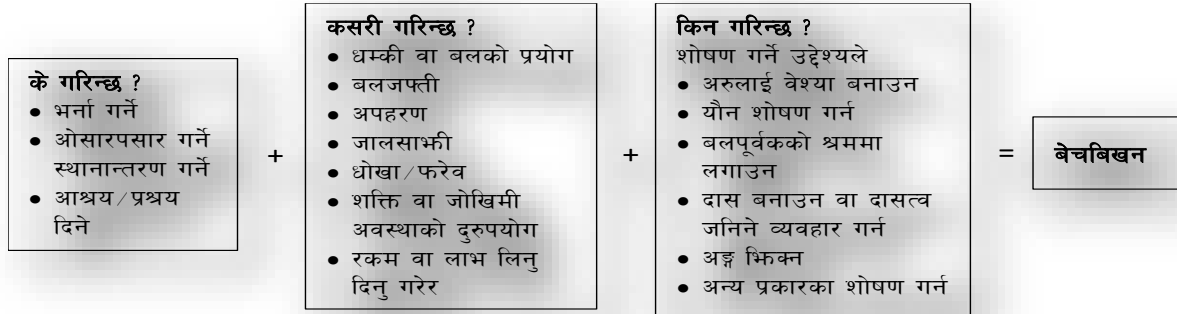 के गरिन्छ ?
• भर्ना गर्ने
• ओसारपसार गर्ने
स्थानान्तरण गर्ने
• आश्रय/प्रश्रय
दिने
+
कसरी गरिन्छ ?
• धम्की वा बलको प्रयोग
• बलजफ्ती
• अपहरण
• जालसाझी
• धोखा/फरेव
• शक्ति वा जोखिमी
अवस्थाको दुरुपयोग
• रकम वा लाभ लिनु
दिनु गरेर
+
किन गरिन्छ ?
शोषण गर्ने उद्देश्यले
• अरुलाई वेश्या बनाउन
• यौन शोषण गर्न
• बलपूर्वकको श्रममा
लगाउन
• दास बनाउन वा दासत्व
जनिने व्यवहार गर्न
• अङ्ग झिक्न
• अन्य प्रकारका शोषण गर्न
=
बेचबिखन